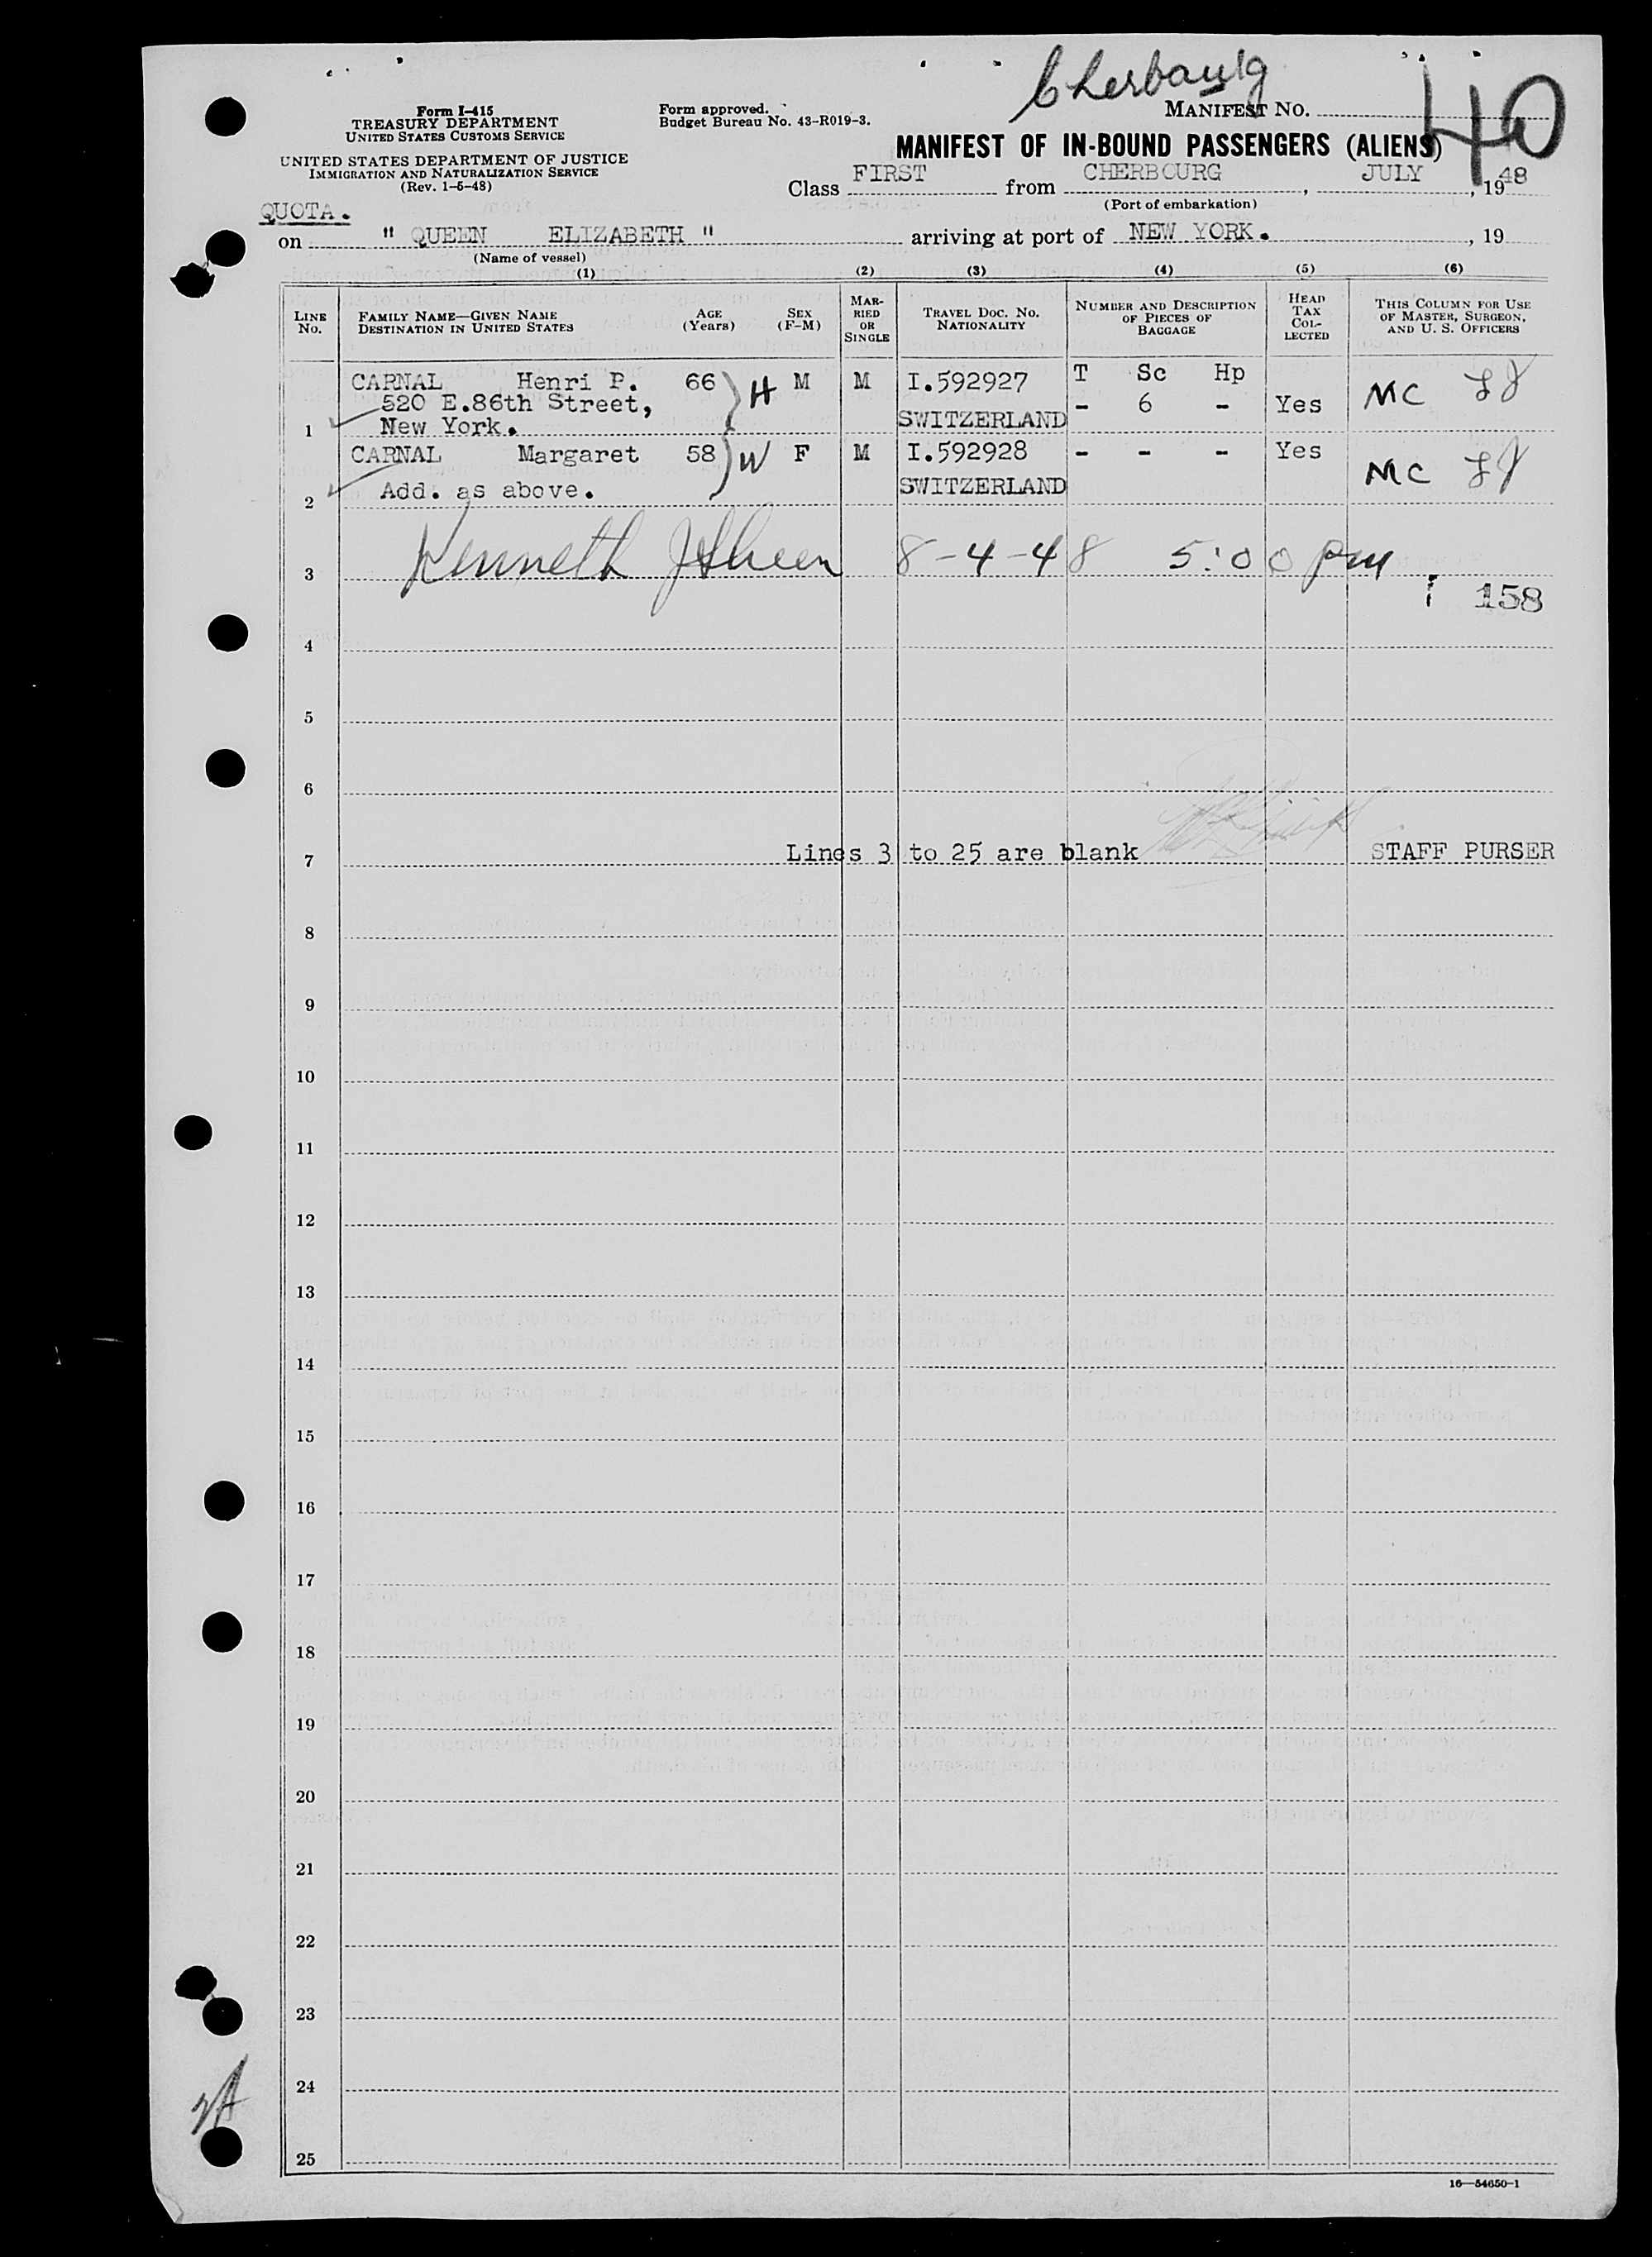 Cherbourg
Form I-415
TREASURY DEPARTMENT
UNITED STATES CUSTOMS SERVICE
UNITED STATES DEPARTMENT OF JUSTICE
IMMIGRATION AND NATURALIZATION SERVICE
(Rev. 1-6-48)
Form approved.
Budget Bureau No. 43-R019-3.
MANIFEST NO. 40
MANIFEST OF IN-BOUND PASSENGERS (ALIENS)
Class FIRST from CHERBOURG, JULY, 1948
(Port of embarkation)
QUOTA.
on " QUEEN ELIZABETH " arriving at port of NEW YORK., 19
(Name of vessel)
(1) (2) (3) (4) (5) (6)
LINE No. FAMILY NAME—GIVEN NAME DESTINATION IN UNITED STATES AGE (Years) SEX (F-M) MARRIED OR SINGLE TRAVEL DOC. NO. NATIONALITY NUMBER AND DESCRIPTION OF PIECES OF BAGGAGE HEAD TAX COLLECTED THIS COLUMN FOR USE OF MASTER, SURGEON, AND U. S. OFFICERS
CARNAL Henri P. 66 H M M I.592927 T Sc Hp
520 E.86th Street, - 6 - Yes MC
1 New York. SWITZERLAND
CARNAL Margaret 58 W F M I.592928 - - - Yes
2 Add. as above. SWITZERLAND MC
3 Kenneth 8-4-48 5:00 pm
158
4
5
6
7 Lines 3 to 25 are blank STAFF PURSER
8
9
10
11
12
13
14
15
16
17
18
19
20
21
22
23
24
25
16—54650-1